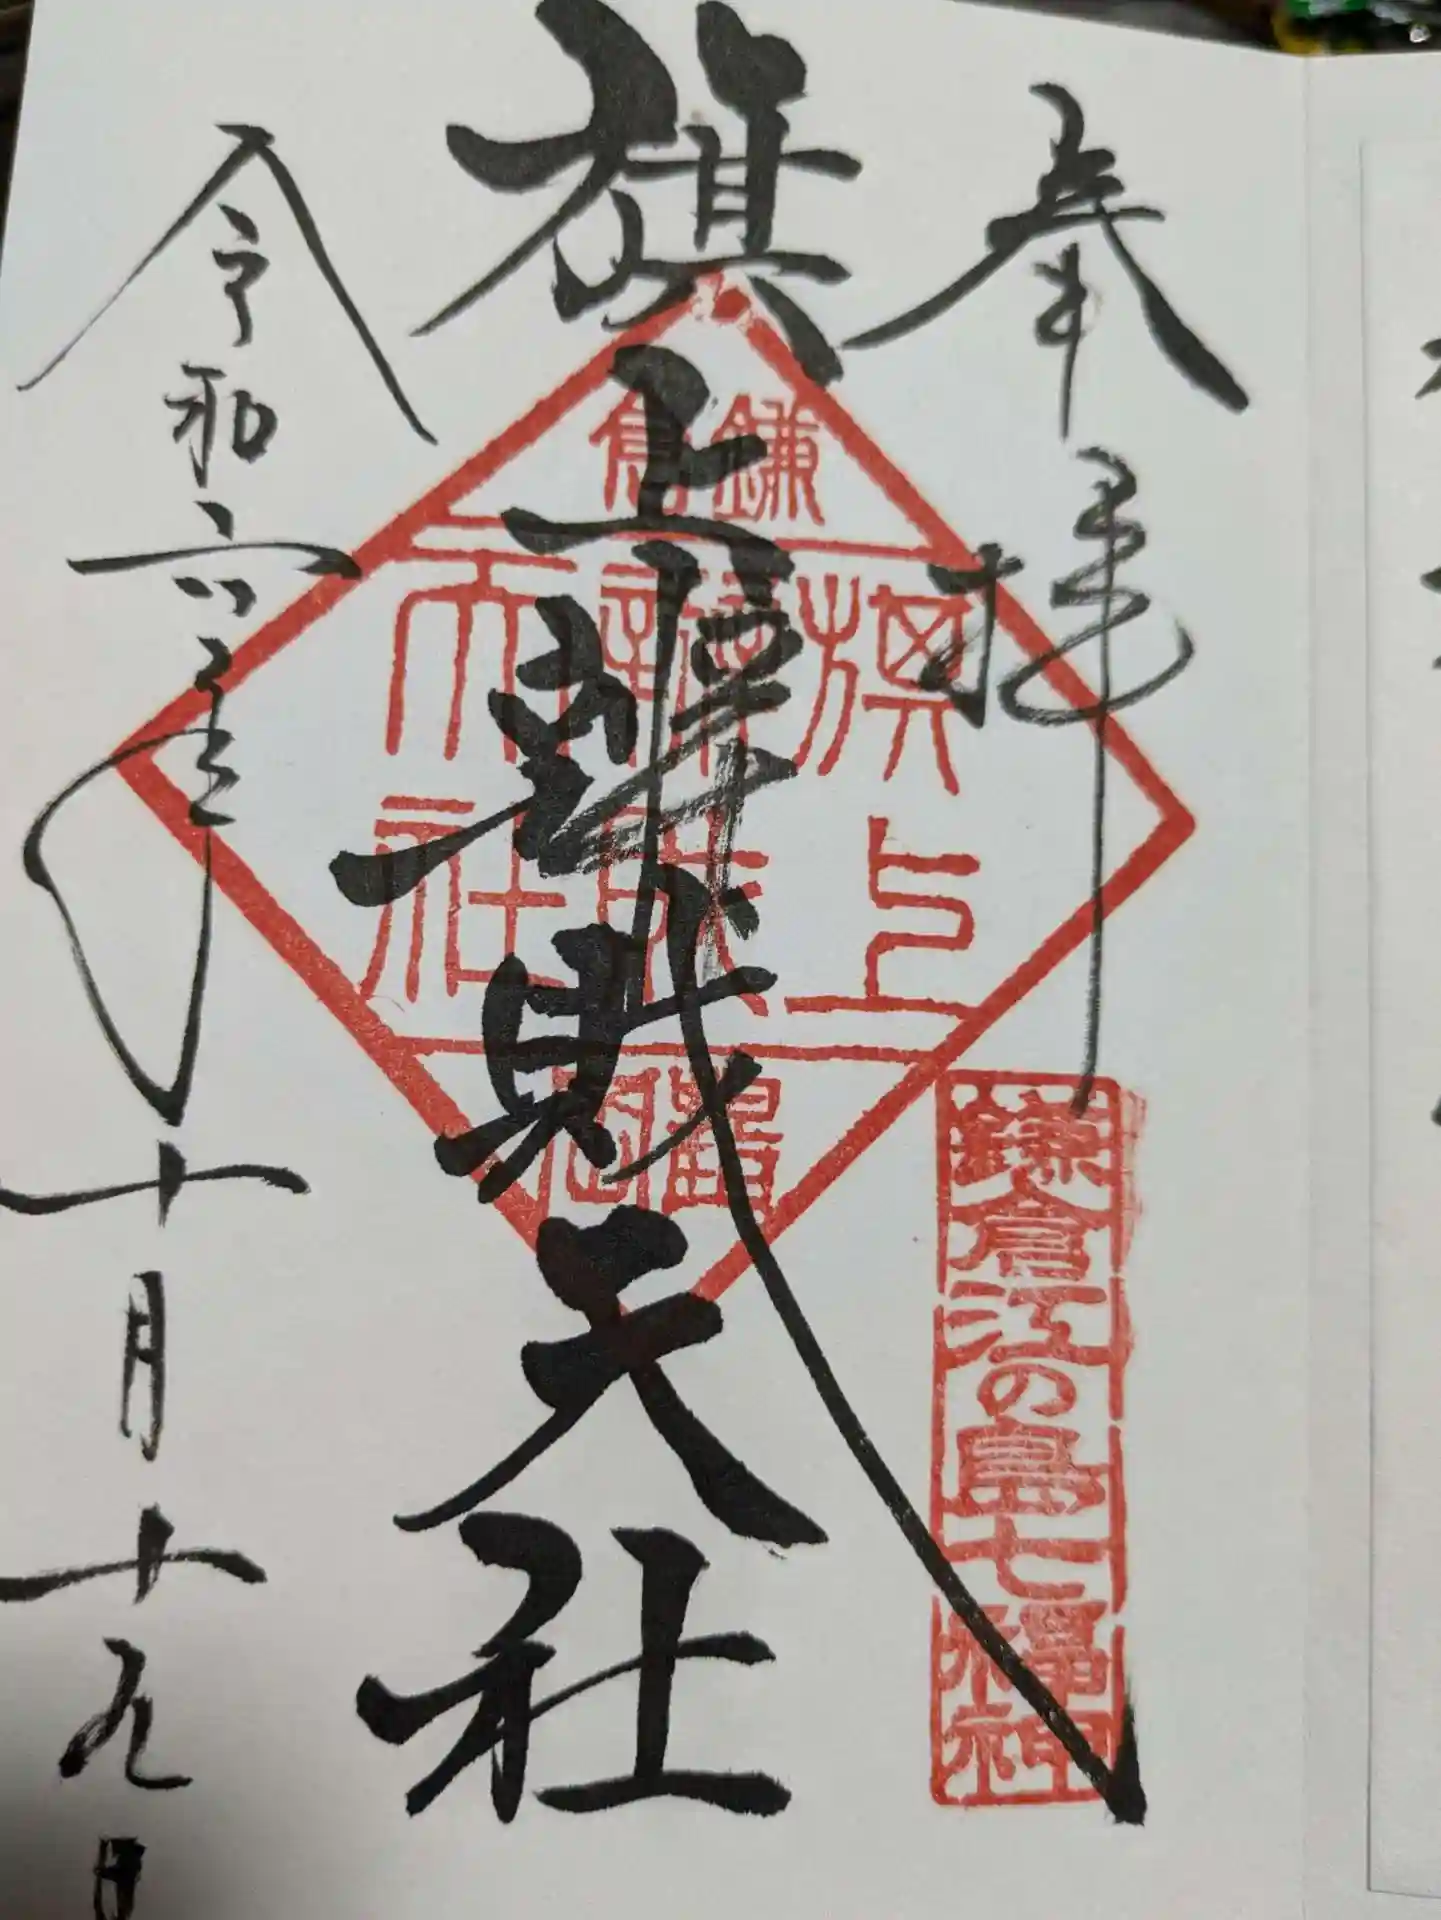 奉拝
鎌倉江の島七福神
旗上辨財天社
鎌倉
旗上
辨財
天社
鶴岡
令和六年十月十九日